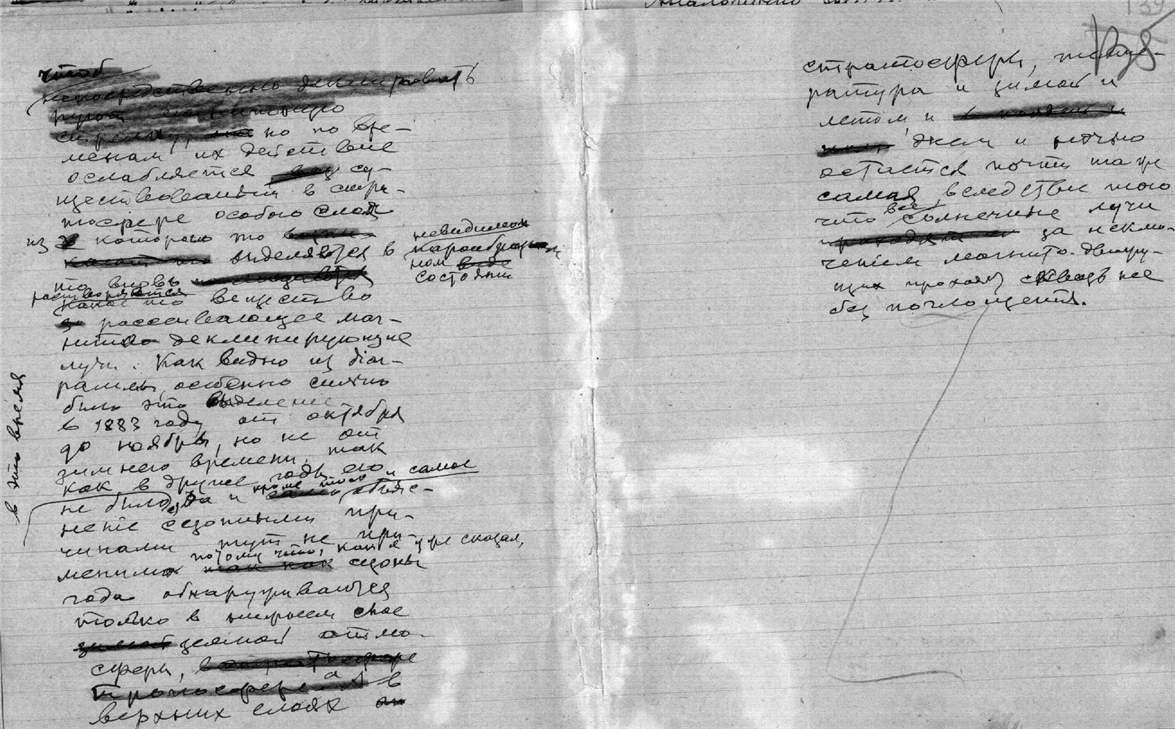 Аналогично
138
чтоб
непосредственно деклинировать
но по вре-
менам их действие
ослабляется су-
ществованием в стра-
тосфере особого слоя
из которого то невидимом
выделяется в парообраз-
то вновь ном состоянии
растворяется
какое то вещество
рассеивающее маг-
нито деклинирующие
лучи. Как видно из діаг-
раммы, особенно сильно
было это выделение
в 1883 году от октября
до ноября, но не от
зимнего времени, так
как в другие годы его
в это время
не было, да и кроме того и самое объяс-
неніе сезонными при-
чинами тут не при-
менимо потому что, как я уже сказал,
сезоны
года обнаруживаются
только в нижнем слое
земной атмо-
сферы, а в
верхних слоях
стратосферы, темпе-
ратура и зимой и
летом и
днем и ночью
остается почти та же
самая вследствие того
что все солнечные лучи
за исклю-
чением магнито-движу-
щих проходят сквозь нее
без поглощения.